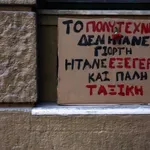 ΤΟ ΠΟΛΥΤΕΧΝΕ
ΔΕΝ ΗΤΑΝΕ
ΓΙΟΡΤΗ
ΗΤΑΝΕ ΕΞΕΓΕΡ
ΚΑΙ ΠΑΛΗ
ΤΑΞΙΚΗ